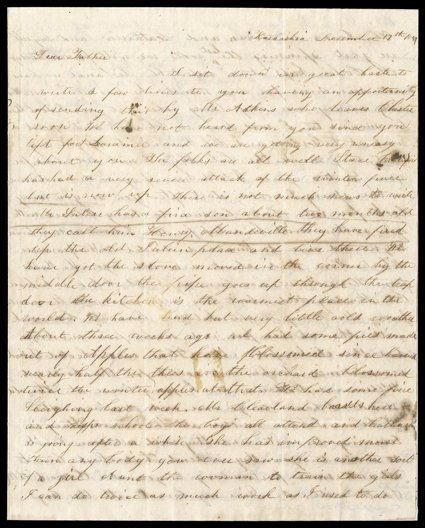 Kaskaskia November 17th
Dear Father
I set down in great haste to
write a few lines to you having an opportunity
of sending this by Mr Adkins who leaves
soon We have not heard from you since you
left and we are getting very uneasy
about you. The folks are all well
has had a very severe attack of the winter fever
but is now up There is not much news to write
Mr has a fine son about two months old
they call him Henry they have fixed
up the old place and live there We
have got the stove moved in the corner by the
middle door the pipe goes up through the top
door the kitchen is the warmest place in the
world. We have had but very little cold weather
About three weeks ago we had some pies made
out of apples that have blossomed since harvest
nearly half the trees in the orchard blossomed
twice the winter apples at that. We had some fine
last week Mr Cleaveland boards here
and keeps school the boys all attend and
is going after a while. She has improved more
than any body you ever saw she is another sort
of a girl Aunt the woman to train the girls
I can do twice as much work as I used to do